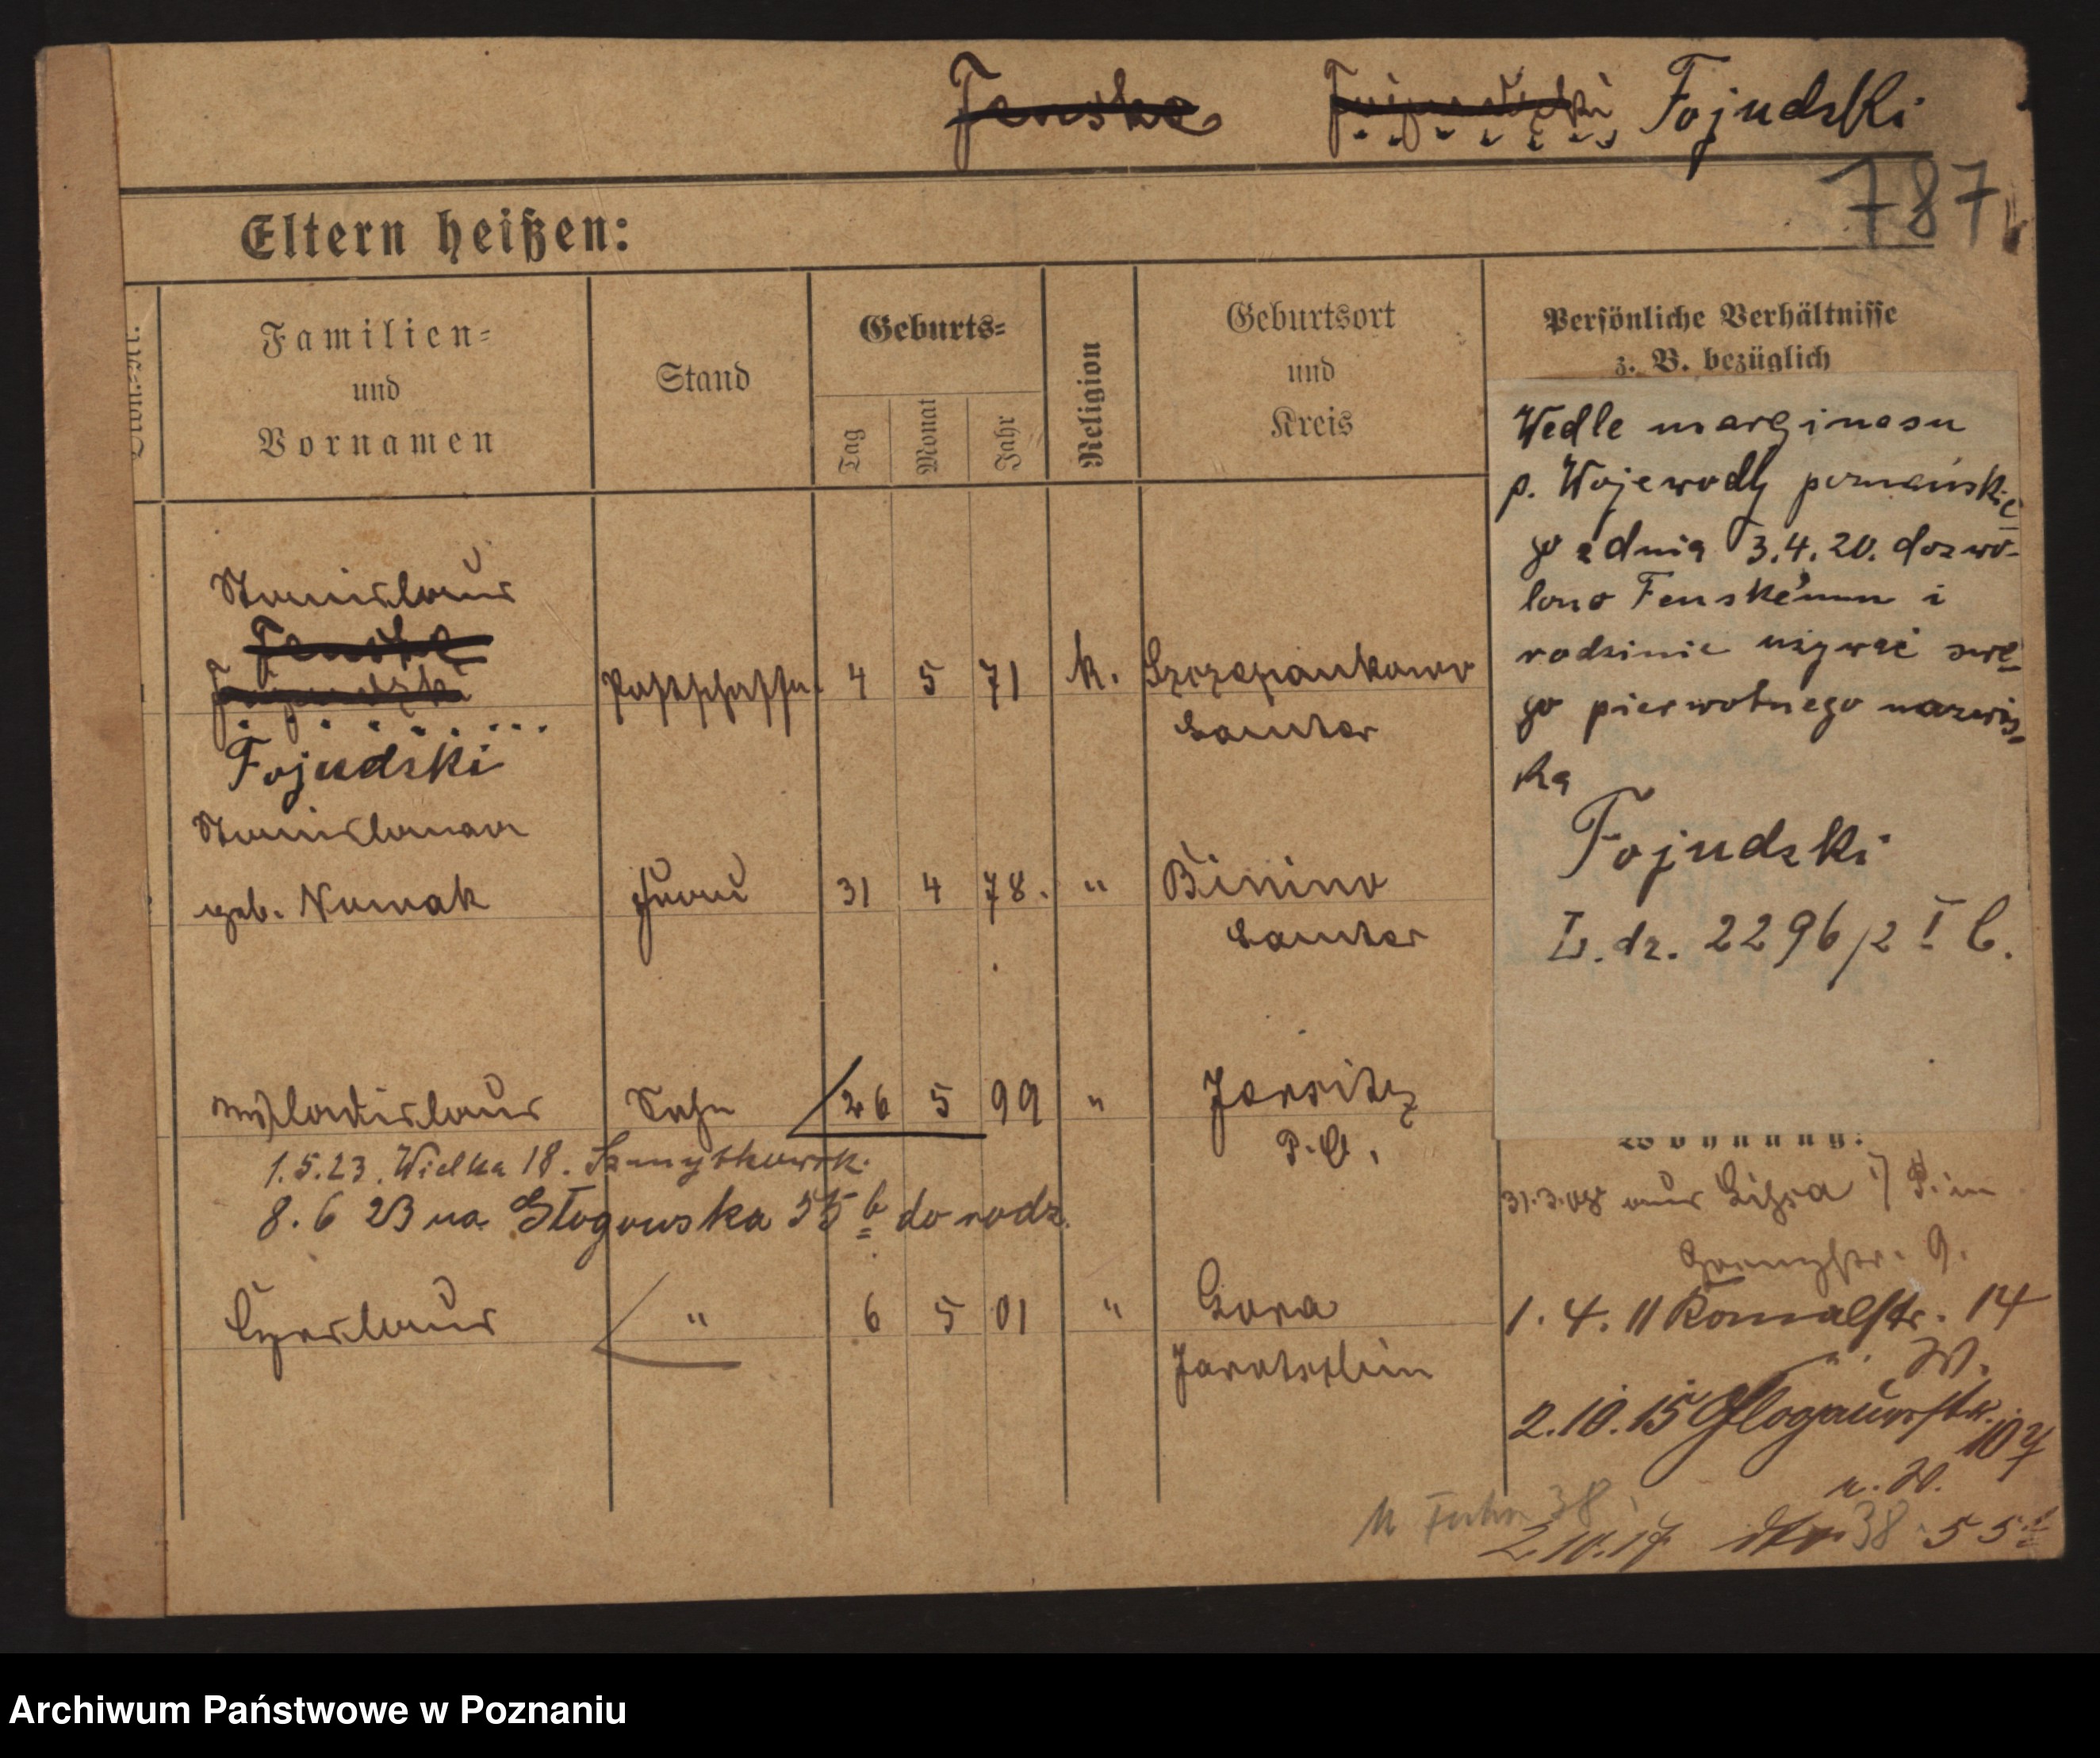 Fenske Fojudzki Fojudzki
787
Eltern heißen:
Familien-
und
Vornamen
Stand
Geburts-
Tag
Monat
Jahr
Religion
Geburtsort
und
Kreis
Persönliche Verhältnisse
z. B. bezüglich
Wedle marginesu
p. Wojewody poznańskie
go z dnia 3.4.20. dozwo-
lono Fenske'mu i
rodzinie używać swe-
go pierwotnego nazwis-
ka
Fojudzki
L. dz. 2296/2 I b.
Stanislaus
Fenske
Fojudzki
Fojudzki
Postschaffn. 4 5 71 k. Szczepankowo
Samter
Stanislawa
geb. Nowak Frau 31 4 78. " Binino
Samter
Wladislaus Sohn 26 5 99 " Jersitz
P. O.
1.5.23. Wielka 18. Szmytkowsk.
8.6 23 na Głogowska 55 b do rodz.
Czeslaus " 6 5 01 " Gora
Jarotschin
Wohnung:
31.3.08 aus Lissa i/P. in
9.
1.4.11 14
W.
2.10.15 Glogauerstr. 107
n. W.
38
2.10.17 38 55
Archiwum Państwowe w Poznaniu